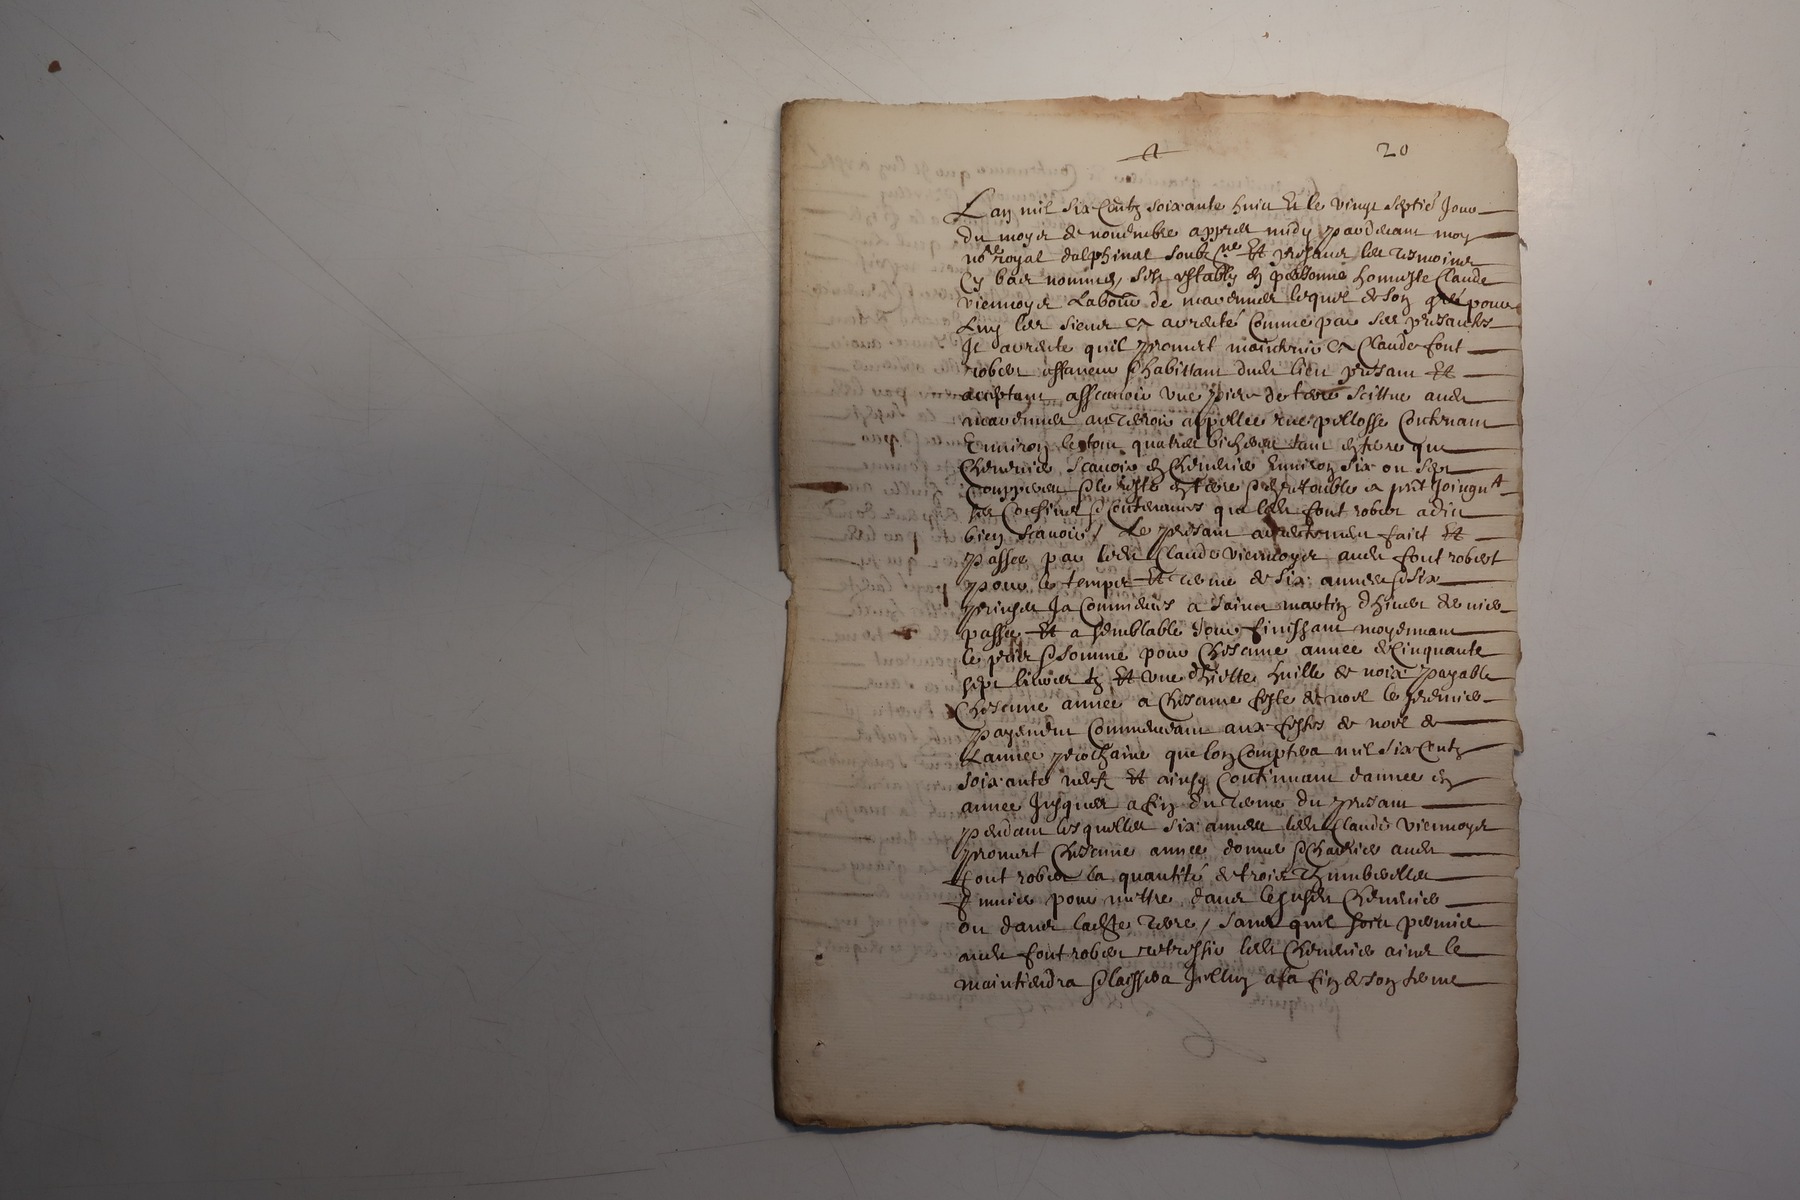 20
Lan mil six centz soixante huict et le vingt septie Jour
du moys de novembre appres midy pardevant moy
nore royal dalphinal soubzne et presents les tesmoins
Cy bas nommes sest estably en personne honneste Claude
viennoys labour de marennes lequel de son gre pour
Luy les siens a arrente comme par ses presantes
Il arrente quil promet maintenir a Claude font
robert habittant dudt lieu presant et
acceptant asscavoir une piece de terre scittue audt
marennes au terroir appellee contenant
Environ le tout quatre bicheres tant en terre que
Chenevier scavoir en Chenevier Environ six ou sept
Couppees le reste en terre
ses Confins Contenances que ledt font robert a dit
bien scavoir / Le presant arrentement faict et
passee par ledt Claude viennoys audt font robert
pour le temps et terme de six annees six
prinses Ja Commences a sainct martin dhiver dernier
passe et a semblable Jour finissant moyennant
le pris somme pour Chescune annee de Cinquante
sept livres tz et une huille de noix payable
Chescune annee a Chescune feste de noel le premier
payement Commencant aux festes de noel de
Lannee prochaine que lon Comptera mil six Centz
soixante neuf et ainsy Continuant dannee en
annee Jusques a fin du terme du presant
pendant lesquelles six annees ledt Claude viennoys
promet Chescune annee donner audt
font robert la quantite de trois
fumier pour mettre dans le susdt Chenevier
ou dans ladte terre / sans quil soit permis
audt font robert ledt Chenevier ains le
maintiendra laissera a la fin de son terme